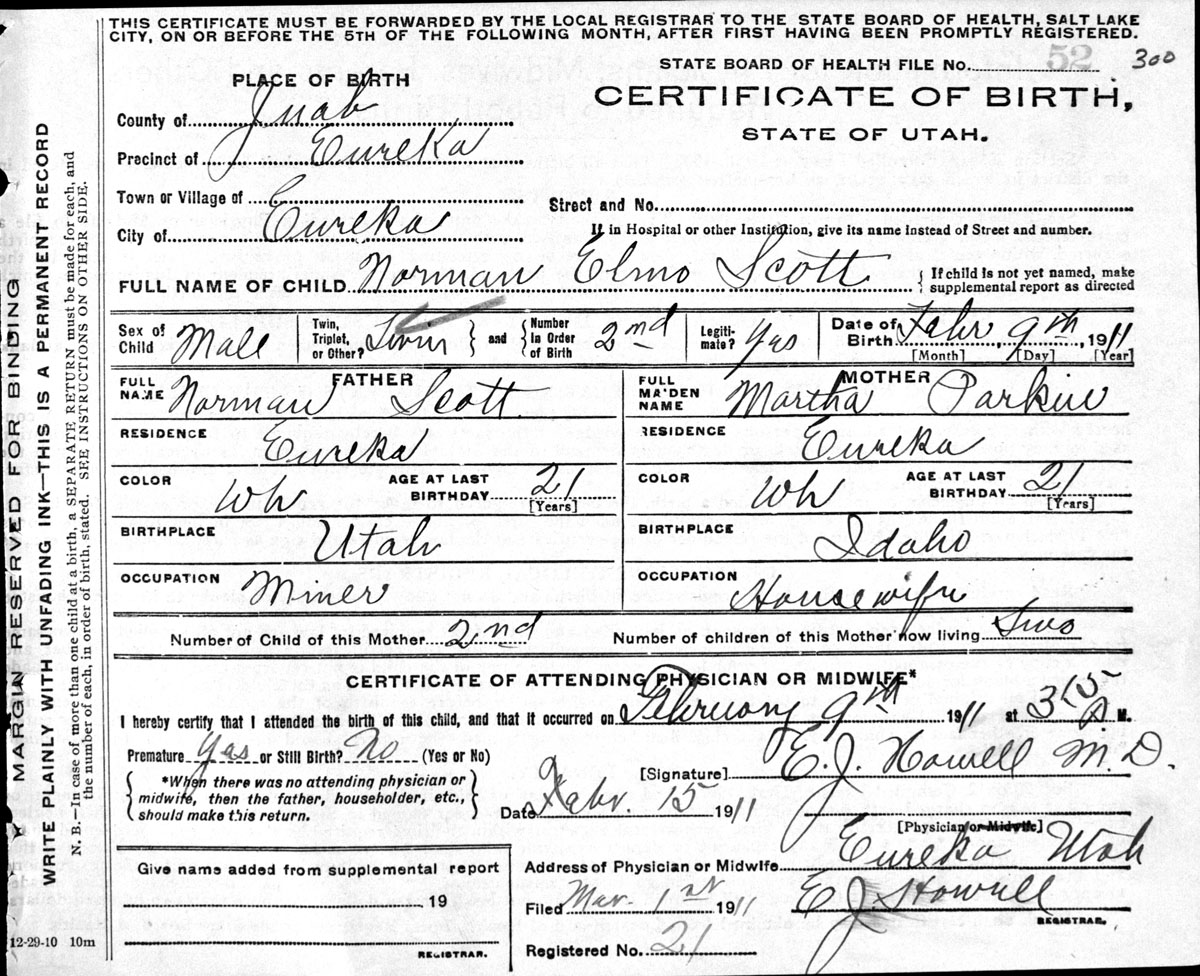 THIS CERTIFICATE MUST BE FORWARDED BY THE LOCAL REGISTRAR TO THE STATE BOARD OF HEALTH, SALT LAKE
CITY, ON OR BEFORE THE 5TH OF THE FOLLOWING MONTH, AFTER FIRST HAVING BEEN PROMPTLY REGISTERED.
STATE BOARD OF HEALTH FILE No. 52 300
PLACE OF BIRTH
CERTIFICATE OF BIRTH,
STATE OF UTAH.
County of Juab
Precinct of Eureka
Town or Village of
Street and No.
City of Eureka
If in Hospital or other Institution, give its name instead of Street and number.
FULL NAME OF CHILD Norman Elmo Scott
{ If child is not yet named, make
supplemental report as directed
Sex of Child Male
Twin, Triplet, or Other? Twin } and { Number in Order of Birth 2nd
Legiti-mate? Yes
Date of Birth Febr. 9th 1911
[Month] [Day] [Year]
FATHER
FULL NAME Norman Scott
MOTHER
FULL MAIDEN NAME Martha Parkin
RESIDENCE Eureka
RESIDENCE Eureka
COLOR Wh AGE AT LAST BIRTHDAY 21
[Years]
COLOR Wh AGE AT LAST BIRTHDAY 21
[Years]
BIRTHPLACE Utah
BIRTHPLACE Idaho
OCCUPATION Miner
OCCUPATION Housewife
Number of Child of this Mother 2nd Number of children of this Mother now living Two
CERTIFICATE OF ATTENDING PHYSICIAN OR MIDWIFE*
I hereby certify that I attended the birth of this child, and that it occurred on February 9th 1911 at 3 M.
Premature Yes or Still Birth? No (Yes or No)
{ *When there was no attending physician or
midwife, then the father, householder, etc.,
should make this return. }
[Signature] E. J. Howell M. D.
Date Febr. 15 1911
[Physician or Midwife]
Address of Physician or Midwife Eureka Utah
Filed Mar. 1st 1911 E J. Howell
REGISTRAR.
Registered No. 21
Give name added from supplemental report
19
REGISTRAR.
12-29-10 10m
MARGIN RESERVED FOR BINDING
WRITE PLAINLY WITH UNFADING INK—THIS IS A PERMANENT RECORD
N. B.—In case of more than one child at a birth, a SEPARATE RETURN must be made for each, and
the number of each, in order of birth, stated. SEE INSTRUCTIONS ON OTHER SIDE.